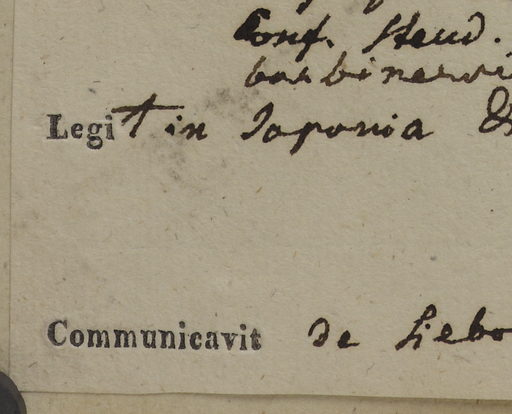 Conf. Steud.
barbinervi
Legit in Japonia
Communicavit de Siebo